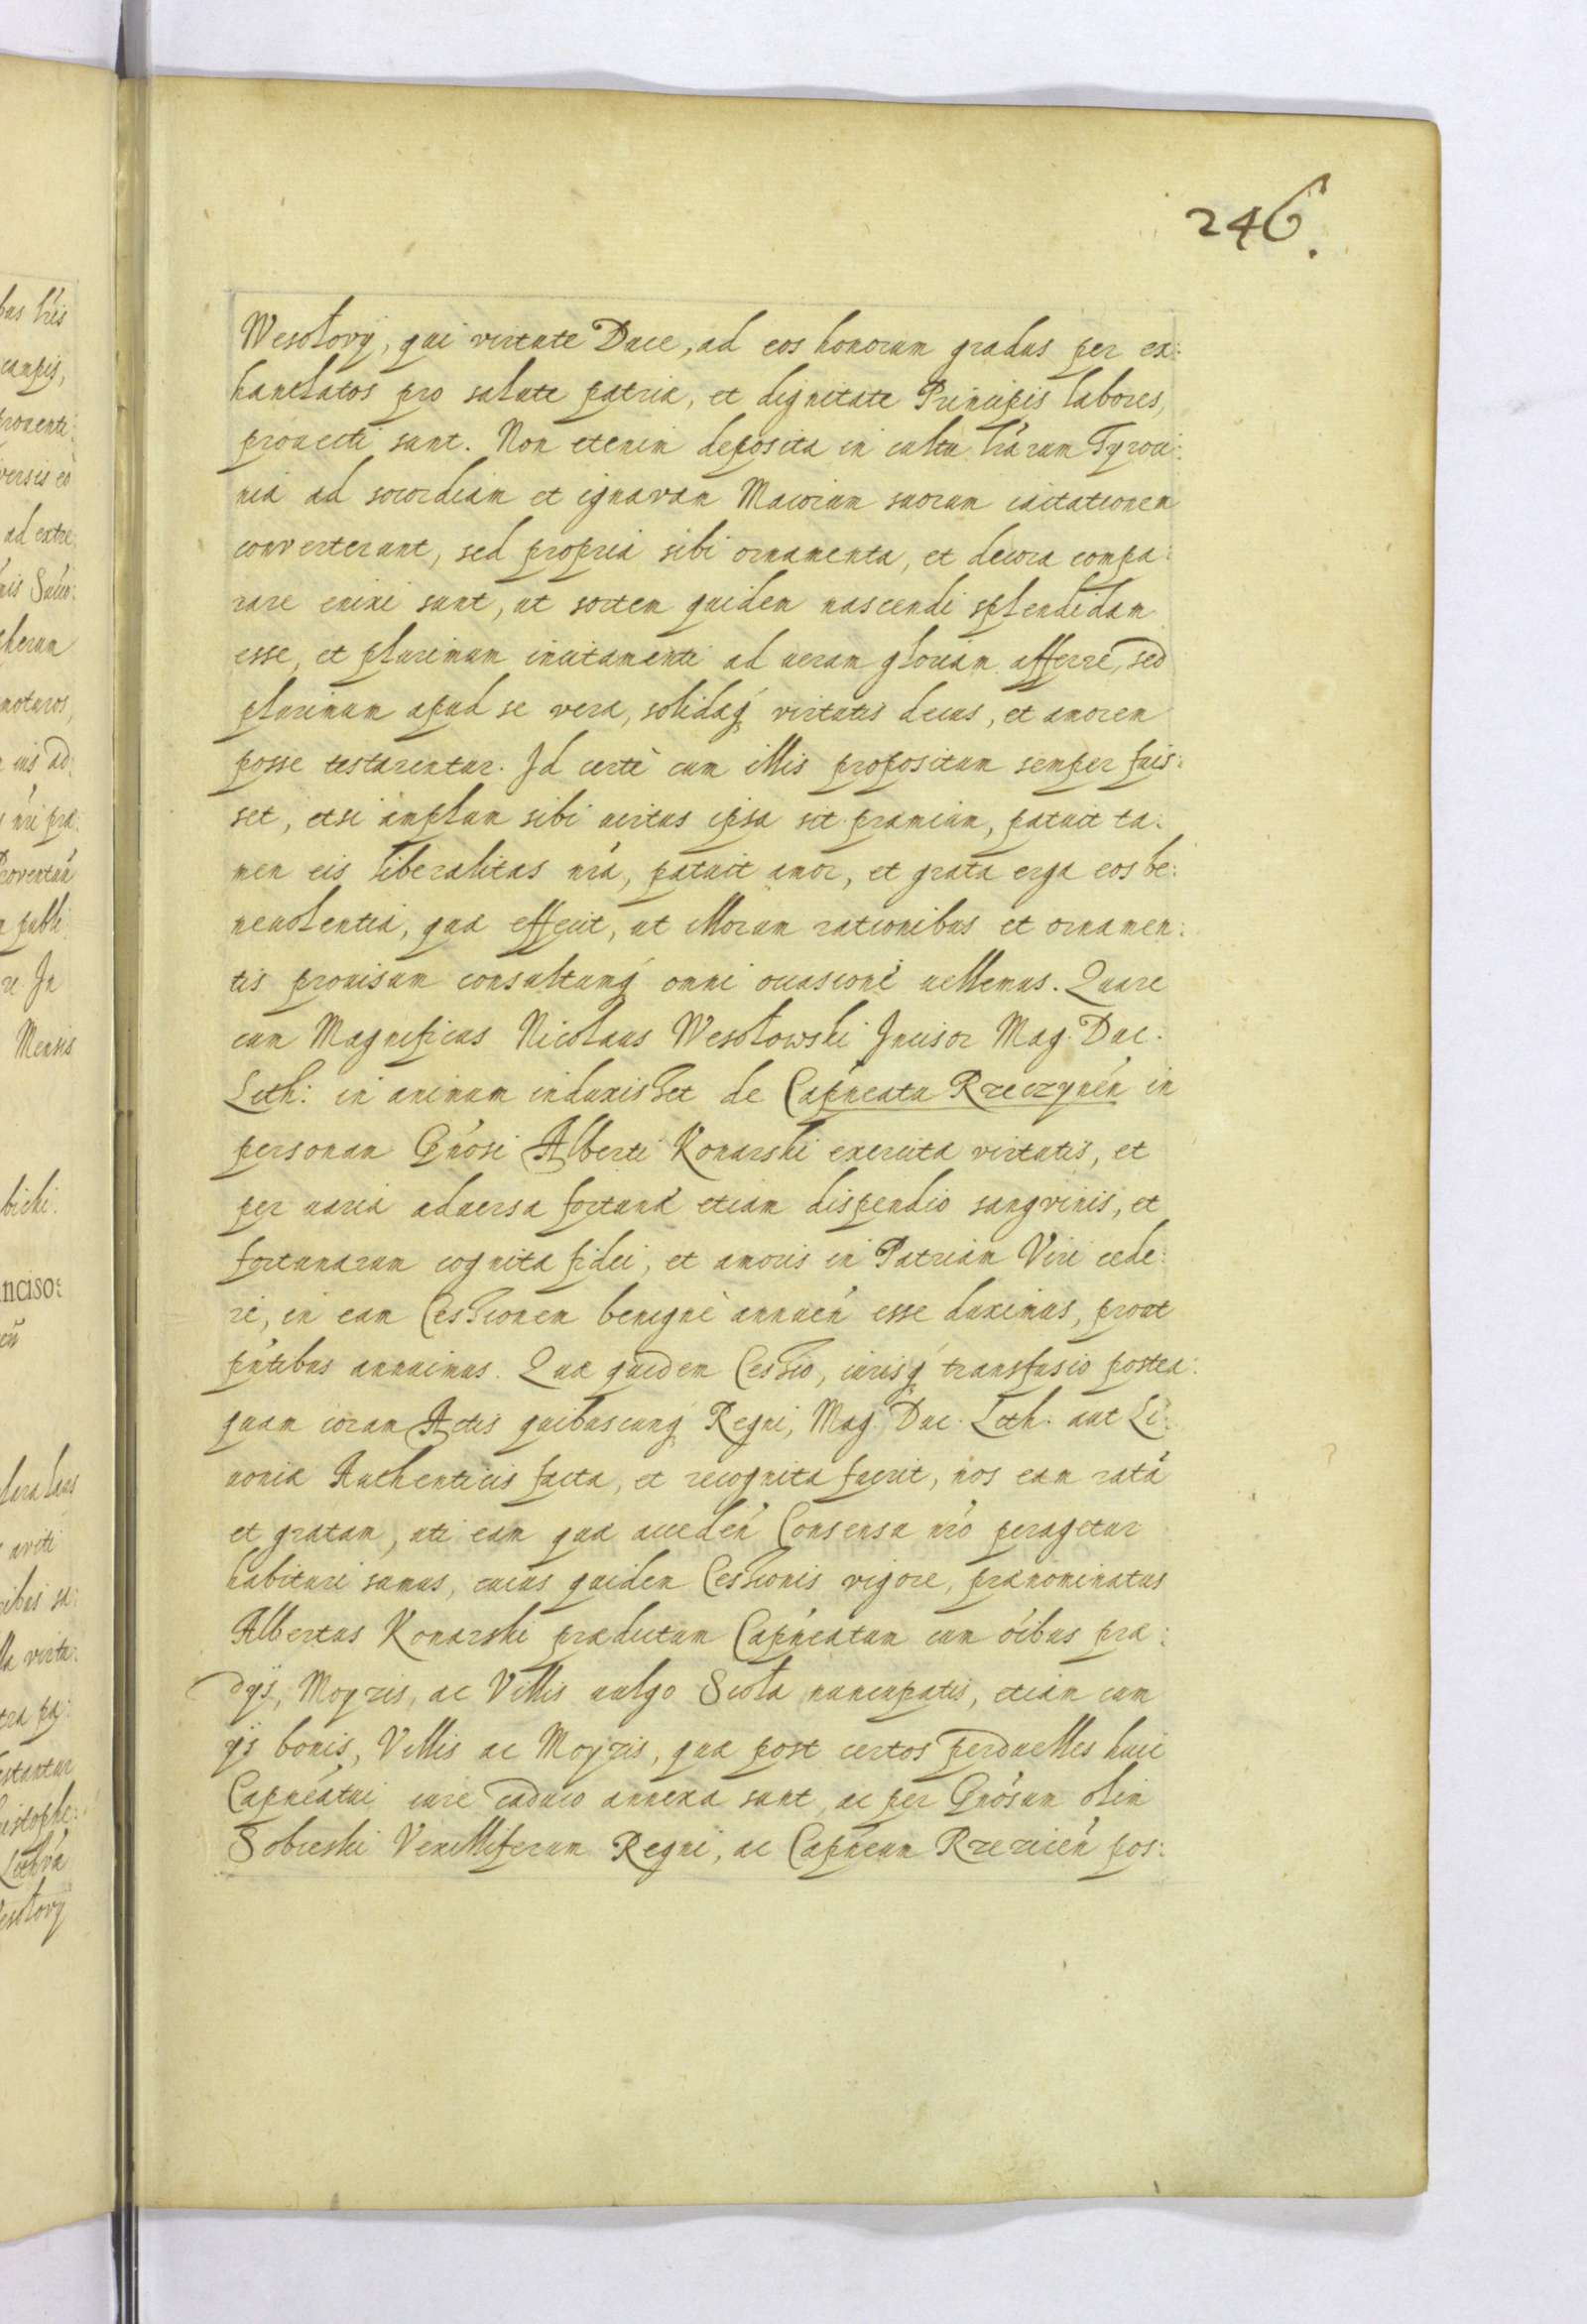 246.
Wesołovÿ, qui virtute Duce, ad eos honorum gradus per ex:
hanelatos pro salute patriæ, et dignitate Principis labores,
provecti sunt. Non etenim deposita in cultu lrārum Tyroci:
nia ad socordiam et ignavam Maiorum suorum iactationem
converterunt, sed propria sibi ornamenta, et decora compa:
rare enixi sunt, ut sortem quidem nascendi splendidam
esse, et plurimum incitamenti ad ueram gloriam afferre, sed
plurimum apud se veræ, solidæq́ virtutis decus, et amorem
posse testarentur. Id certè cum illis propositum semper fuis:
set, etsi amplum sibi uirtus ipsa sit præmium, patuit ta:
men eis liberalitas nr̄a, patuit amor, et grata erga eos be:
neuolentia, quæ effecit, ut illorum rationibus et ornamen:
tis prouisum consultumq́ omni occasione uellemus. Quare
cum Magnificus Nicolaus Wesołowski Incisor Mag. Duc.
Lith: in animum induxisset de Capn̄eatu Rzeczynen̄ in
personam Gn̄osi Alberti Konarski exercitæ virtutis, et
per uaria aduersæ fortunæ etiam dispendio sangvinis, et
fortunarum cognitæ fidei, et amoris in Patriam Viri cede:
re, in eam Cessionem benignè annuen̄ esse duximus, prout
pn̄tibus annuimus. Quæ quidem Cessio, iurisq́ transfusio postea:
quam coram Actis quibuscunq́ Regni, Mag. Duc. Lith. aut Li:
uoniæ Authenticis facta, et recognita fuerit, nos eam ratā
et gratam, uti eam quæ acceden̄ Consensu nr̄o peragetur
habituri sumus, cuius quidem Cessionis vigore, prænominatus
Albertus Konarski prædictum Capn̄eatum cum oībus præ:
dÿs, Moyzis, ac Villis uulgo Sioła nuncupatis, etiam cum
ÿs bonis, Villis ac Moyzis, quæ post certos perduelles huic
Capn̄eatui iure caduco annexa sunt, ac per Gn̄osum olim
Sobieski Vexilliferum Regni, ac Capn̄eum Rzezicen̄ pos: